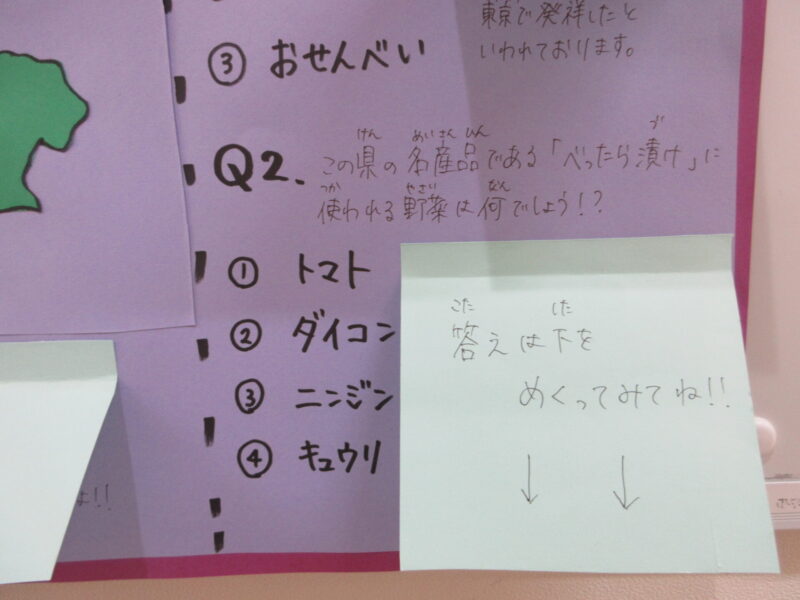 東京で発祥したと
いわれております。
③ おせんべい
Q2. この県の名産品である「べったら漬け」に
使われる野菜は何でしょう!?
① トマト
② ダイコン
③ ニンジン
④ キュウリ
答えは下を
めくってみてね!!
↓ ↓
よ!!